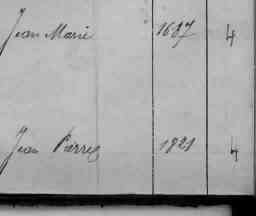 Jean Marie 1687 4
Jean Pierre 1821 4